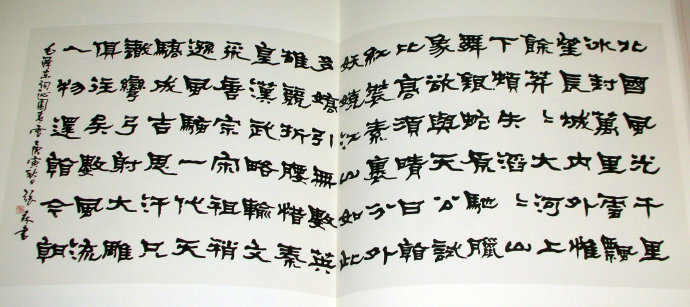 北國風光千里
冰封萬里雪飄
望長城內外惟
餘莽〻大河上
下頓失滔〻山
舞銀蛇原馳臘
象欲與天公試
比高須晴日看
紅裝素裹分外
妖嬈江山如此
多嬌引無數英
雄競折腰惜秦
皇漢武略輸文
采唐宗宋祖稍
遜風騷一代天
驕成吉思汗只
識彎弓射大雕
俱往矣數風流
人物還看今朝
毛澤東詞沁園春雪 寅 張森書